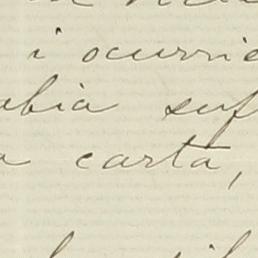 i ocurrie
abia suf
a carta,